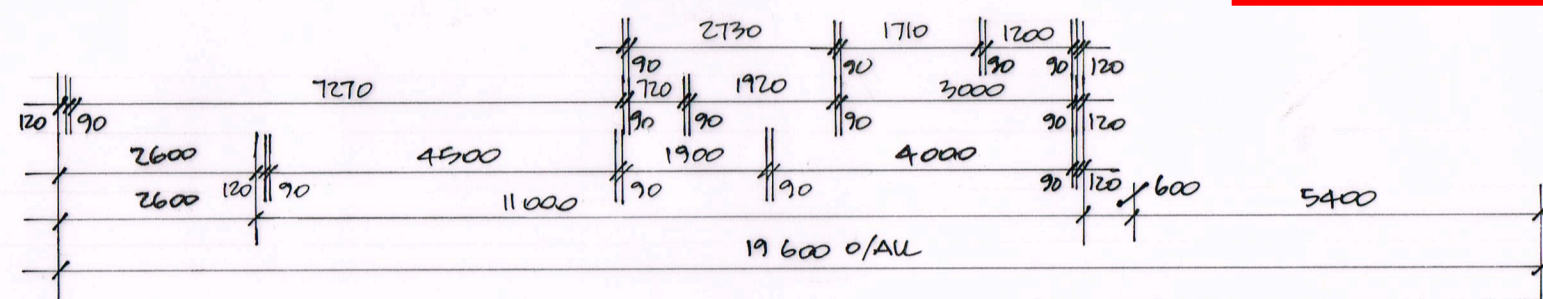 2730 1710 1200
90 90 90 90 120
7270 720 1920 3000
120 90 90 90 90 90 120
2600 4500 1900 4000
120 90 90 90 90 120
2600 11000 600 5400
19 600 O/ALL